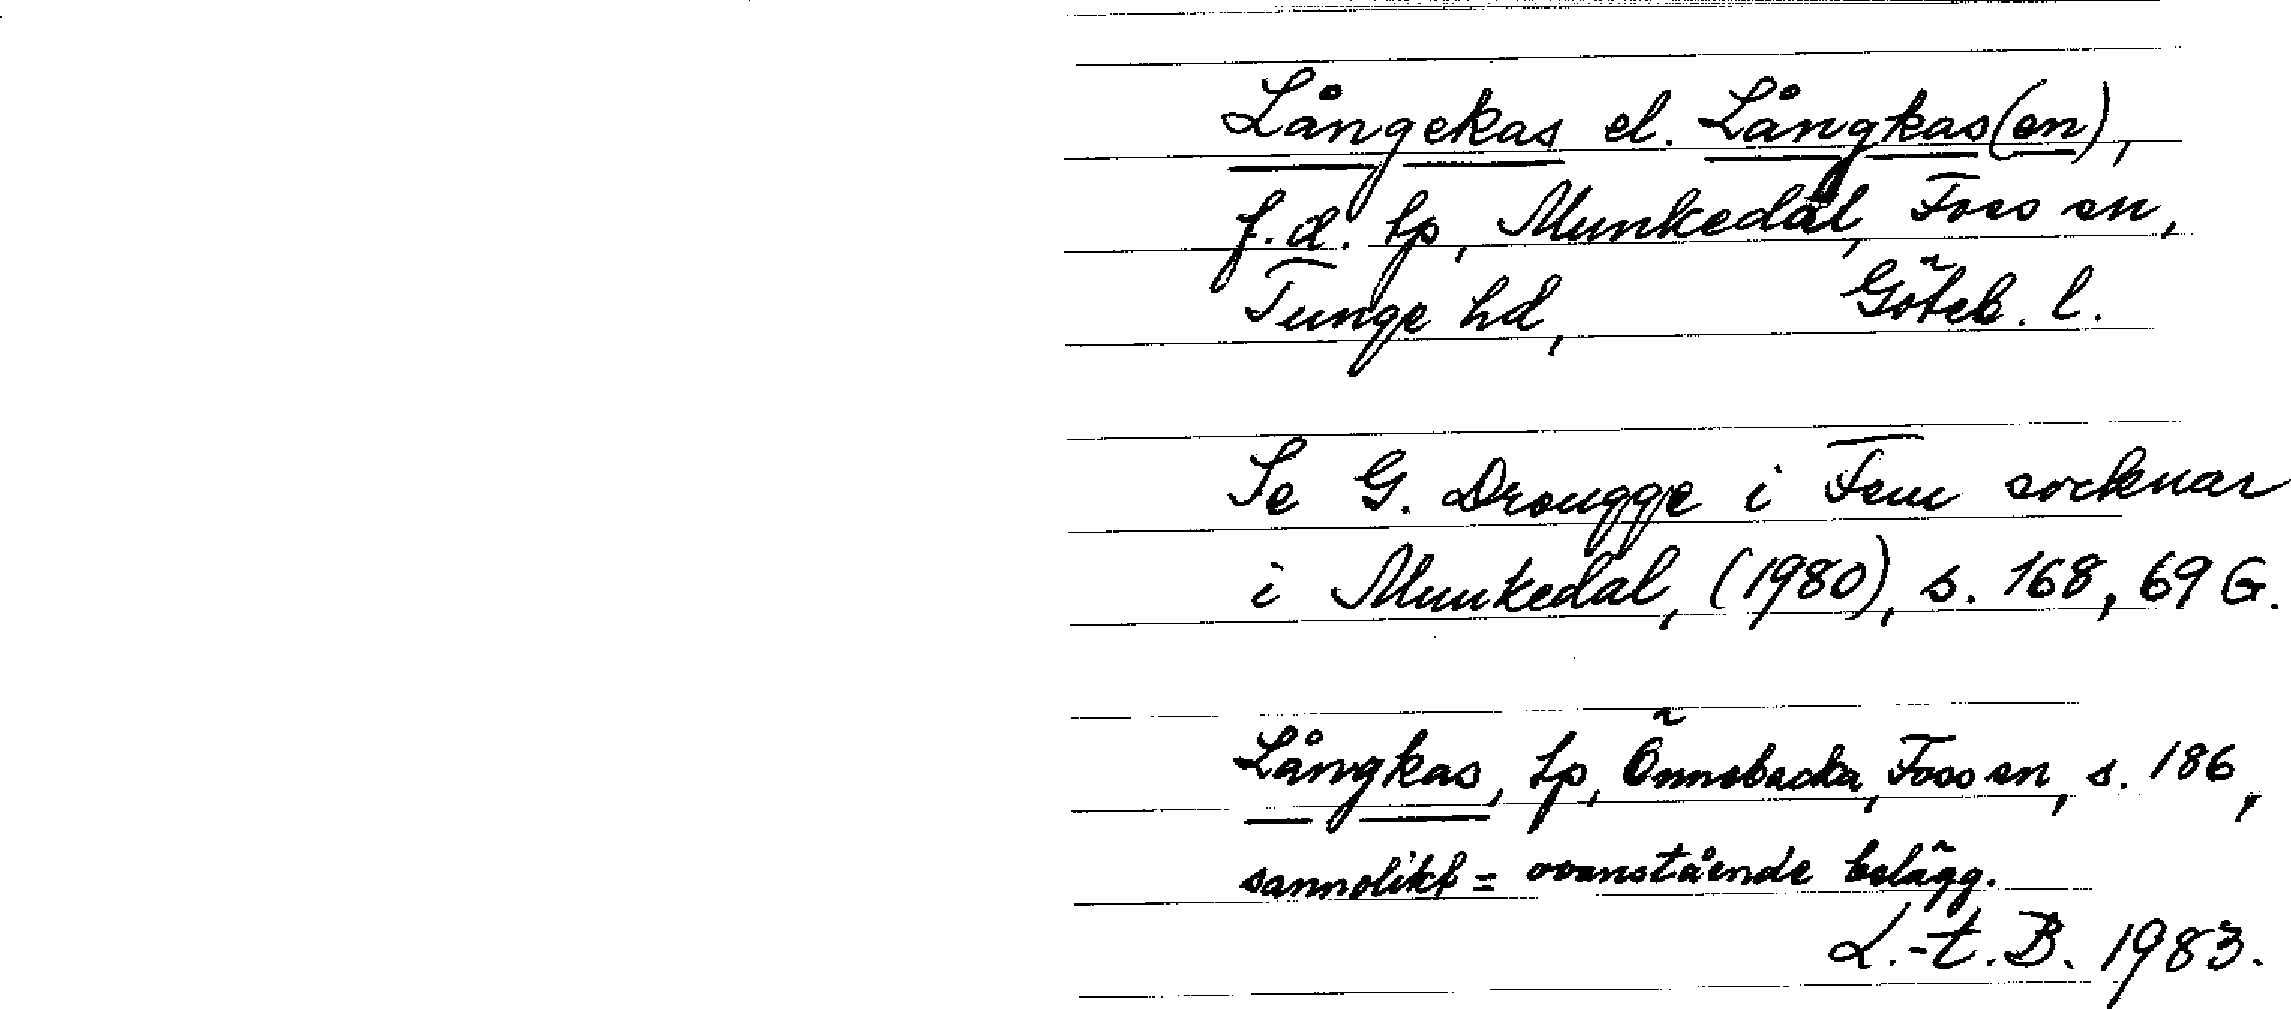 Långekas el. Långkas(en),
f.d. tp, Munkedal, Foss sn,
Tunge hd, Göteb. l.
Se G. Drougge i Fem socknar
i Munkedal, (1980), s. 168, 69 G.
Långkas, tp, Önnebacka, Foss sn, s. 186,
sannolikt = ovanstående belägg.
L.-t. B. 1983.